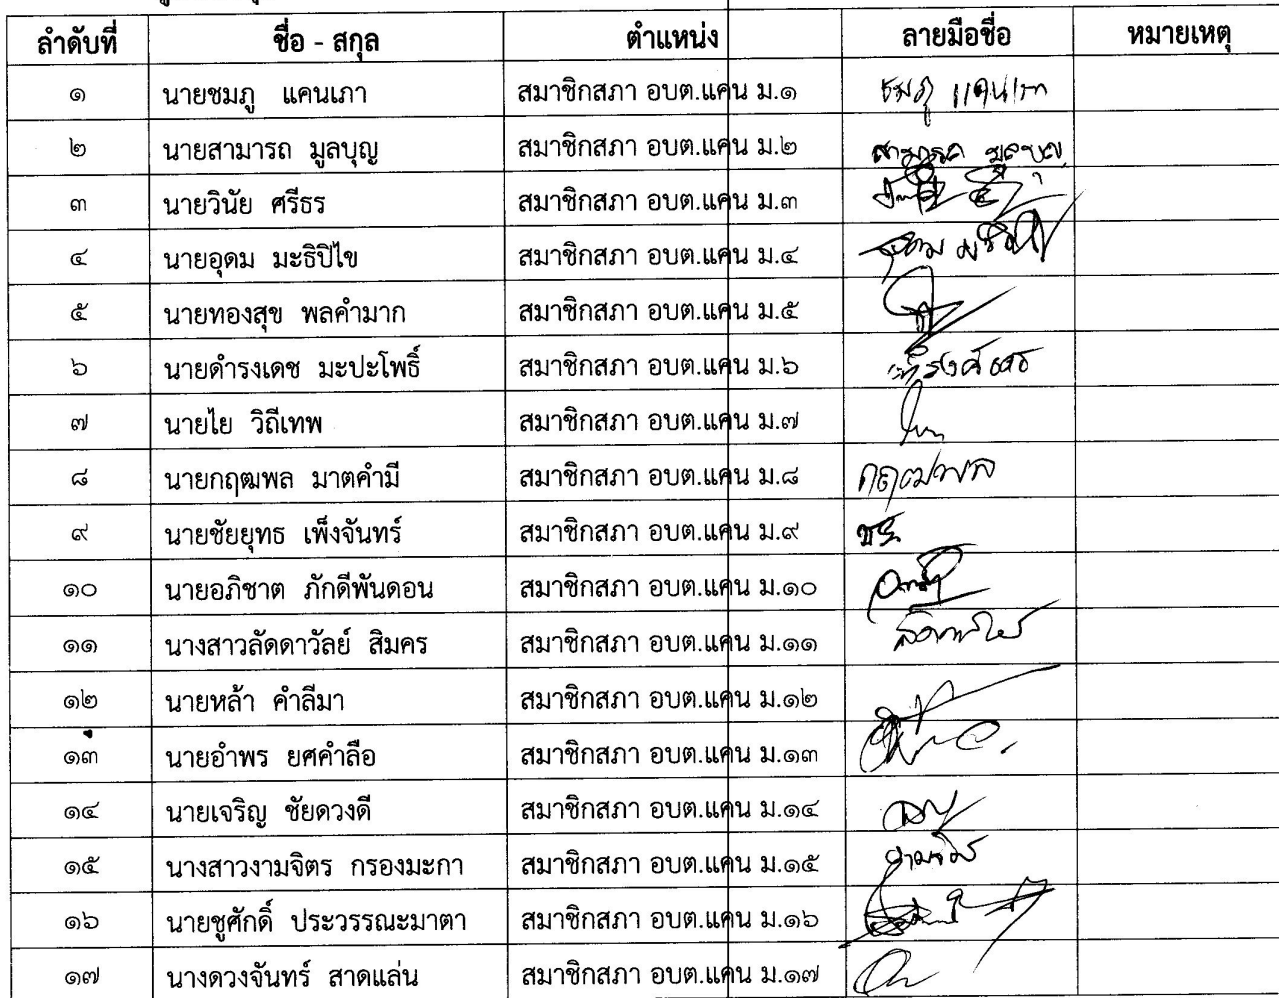 ลำดับที่ ชื่อ - สกุล ตำแหน่ง ลายมือชื่อ หมายเหตุ
๑ นายชมภู แคนเภา สมาชิกสภา อบต.แคน ม.๑ ชมภู แคนเภา
๒ นายสามารถ มูลบุญ สมาชิกสภา อบต.แคน ม.๒ สามารถ มูลบุญ
๓ นายวินัย ศรีธร สมาชิกสภา อบต.แคน ม.๓
๔ นายอุดม มะธิปิไข สมาชิกสภา อบต.แคน ม.๔
๕ นายทองสุข พลคำมาก สมาชิกสภา อบต.แคน ม.๕
๖ นายดำรงเดช มะปะโพธิ์ สมาชิกสภา อบต.แคน ม.๖
๗ นายไย วิถีเทพ สมาชิกสภา อบต.แคน ม.๗
๘ นายกฤฒพล มาตคำมี สมาชิกสภา อบต.แคน ม.๘ กฤฒพล
๙ นายชัยยุทธ เพ็งจันทร์ สมาชิกสภา อบต.แคน ม.๙
๑๐ นายอภิชาต ภักดีพันดอน สมาชิกสภา อบต.แคน ม.๑๐
๑๑ นางสาวลัดดาวัลย์ สิมคร สมาชิกสภา อบต.แคน ม.๑๑
๑๒ นายหล้า คำลีมา สมาชิกสภา อบต.แคน ม.๑๒
๑๓ นายอำพร ยศคำลือ สมาชิกสภา อบต.แคน ม.๑๓
๑๔ นายเจริญ ชัยดวงดี สมาชิกสภา อบต.แคน ม.๑๔
๑๕ นางสาวงามจิตร กรองมะกา สมาชิกสภา อบต.แคน ม.๑๕ งามจิตร
๑๖ นายชูศักดิ์ ประวรรณะมาตา สมาชิกสภา อบต.แคน ม.๑๖
๑๗ นางดวงจันทร์ สาดแล่น สมาชิกสภา อบต.แคน ม.๑๗